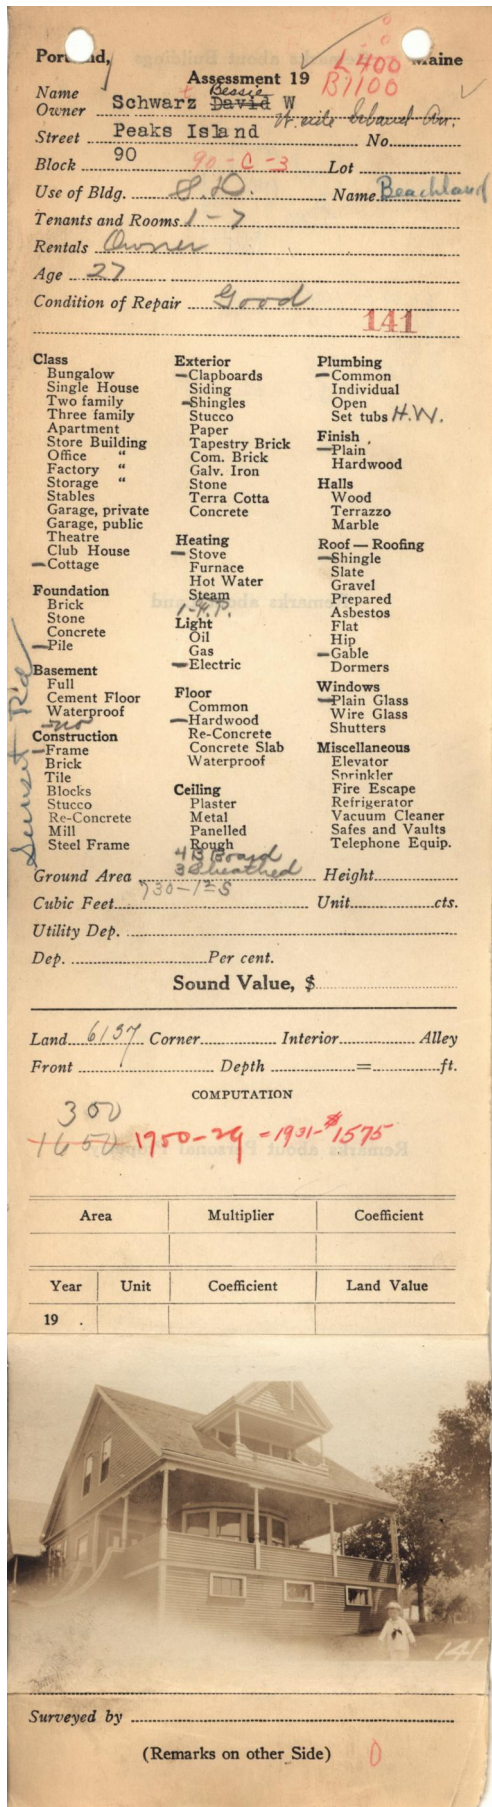 Portland, Maine
L-400
Assessment 19
B1100
Name Bessie
Owner Schwarz David W
Street Peaks Island No.
Block 90 90-C-3 Lot
Use of Bldg. S.D. Name Beachland
Tenants and Rooms 1-7
Rentals Owner
Age 27
Condition of Repair Good
141
Class
Bungalow
Single House
Two family
Three family
Apartment
Store Building
Office "
Factory "
Storage "
Stables
Garage, private
Garage, public
Theatre
Club House
Cottage
Foundation
Brick
Stone
Concrete
Pile
Basement
Full
Cement Floor
Waterproof
no
Construction
Frame
Brick
Tile
Blocks
Stucco
Re-Concrete
Mill
Steel Frame
Sunset Rd
Exterior
Clapboards
Siding
Shingles
Stucco
Paper
Tapestry Brick
Com. Brick
Galv. Iron
Stone
Terra Cotta
Concrete
Heating
Stove
Furnace
Hot Water
Steam
1-F.P.
Light
Oil
Gas
Electric
Floor
Common
Hardwood
Re-Concrete
Concrete Slab
Waterproof
Ceiling
Plaster
Metal
Panelled
Rough
4 B Board
3 Sheathed
Plumbing
Common
Individual
Open
Set tubs H.W.
Finish
Plain
Hardwood
Halls
Wood
Terrazzo
Marble
Roof — Roofing
Shingle
Slate
Gravel
Prepared
Asbestos
Flat
Hip
Gable
Dormers
Windows
Plain Glass
Wire Glass
Shutters
Miscellaneous
Elevator
Sprinkler
Fire Escape
Refrigerator
Vacuum Cleaner
Safes and Vaults
Telephone Equip.
Ground Area 730-1 S Height
Cubic Feet Unit cts.
Utility Dep.
Dep. Per cent.
Sound Value, $
Land 6137 Corner Interior Alley
Front Depth = ft.
COMPUTATION
300
1650 1700-29 = 1931-$1575
Area Multiplier Coefficient
Year Unit Coefficient Land Value
19 .
141
Surveyed by
(Remarks on other Side) 0